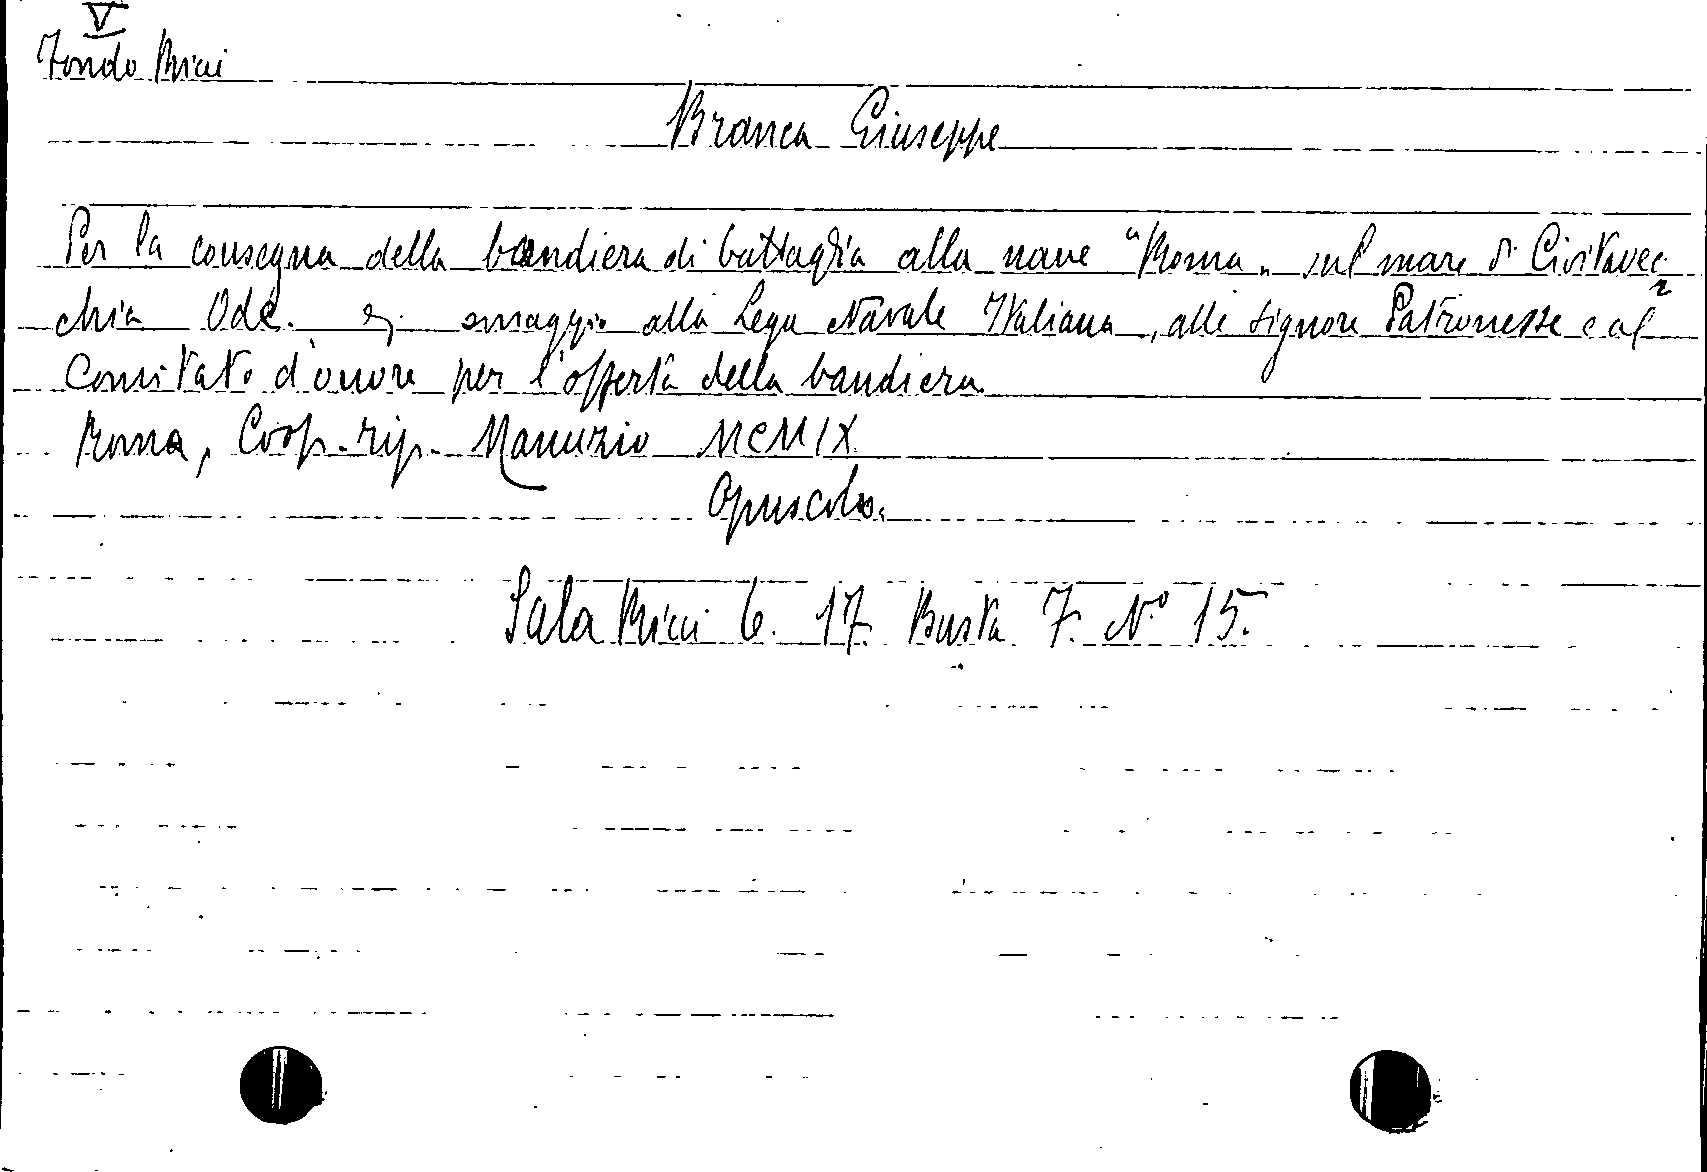 V
Fondo Ricci
Branca Giuseppe
Per la consegna della bandiera di battaglia alla nave "Roma" sul mare di Civitavec
chia Ode. omaggio alla Lega Navale Italiana, alle signore Patronesse e al
Comitato d'onore per l'offerta della bandiera
Roma, Coop. tip. Manuzio MCMIX
Opuscolo.
Sala Ricci 6. 17. Busta 7. N.º 15.